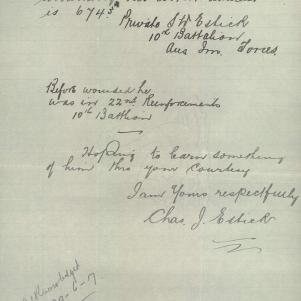 is 6743
Private S W Estick
10th Battalion
Aus Im. Forces
Before wounded he
was in 22nd Reinforcements
10th Batthion
Hoping to learn something
of him thro your Courtesy
I am Yours respectfully
Chas. J. Estick